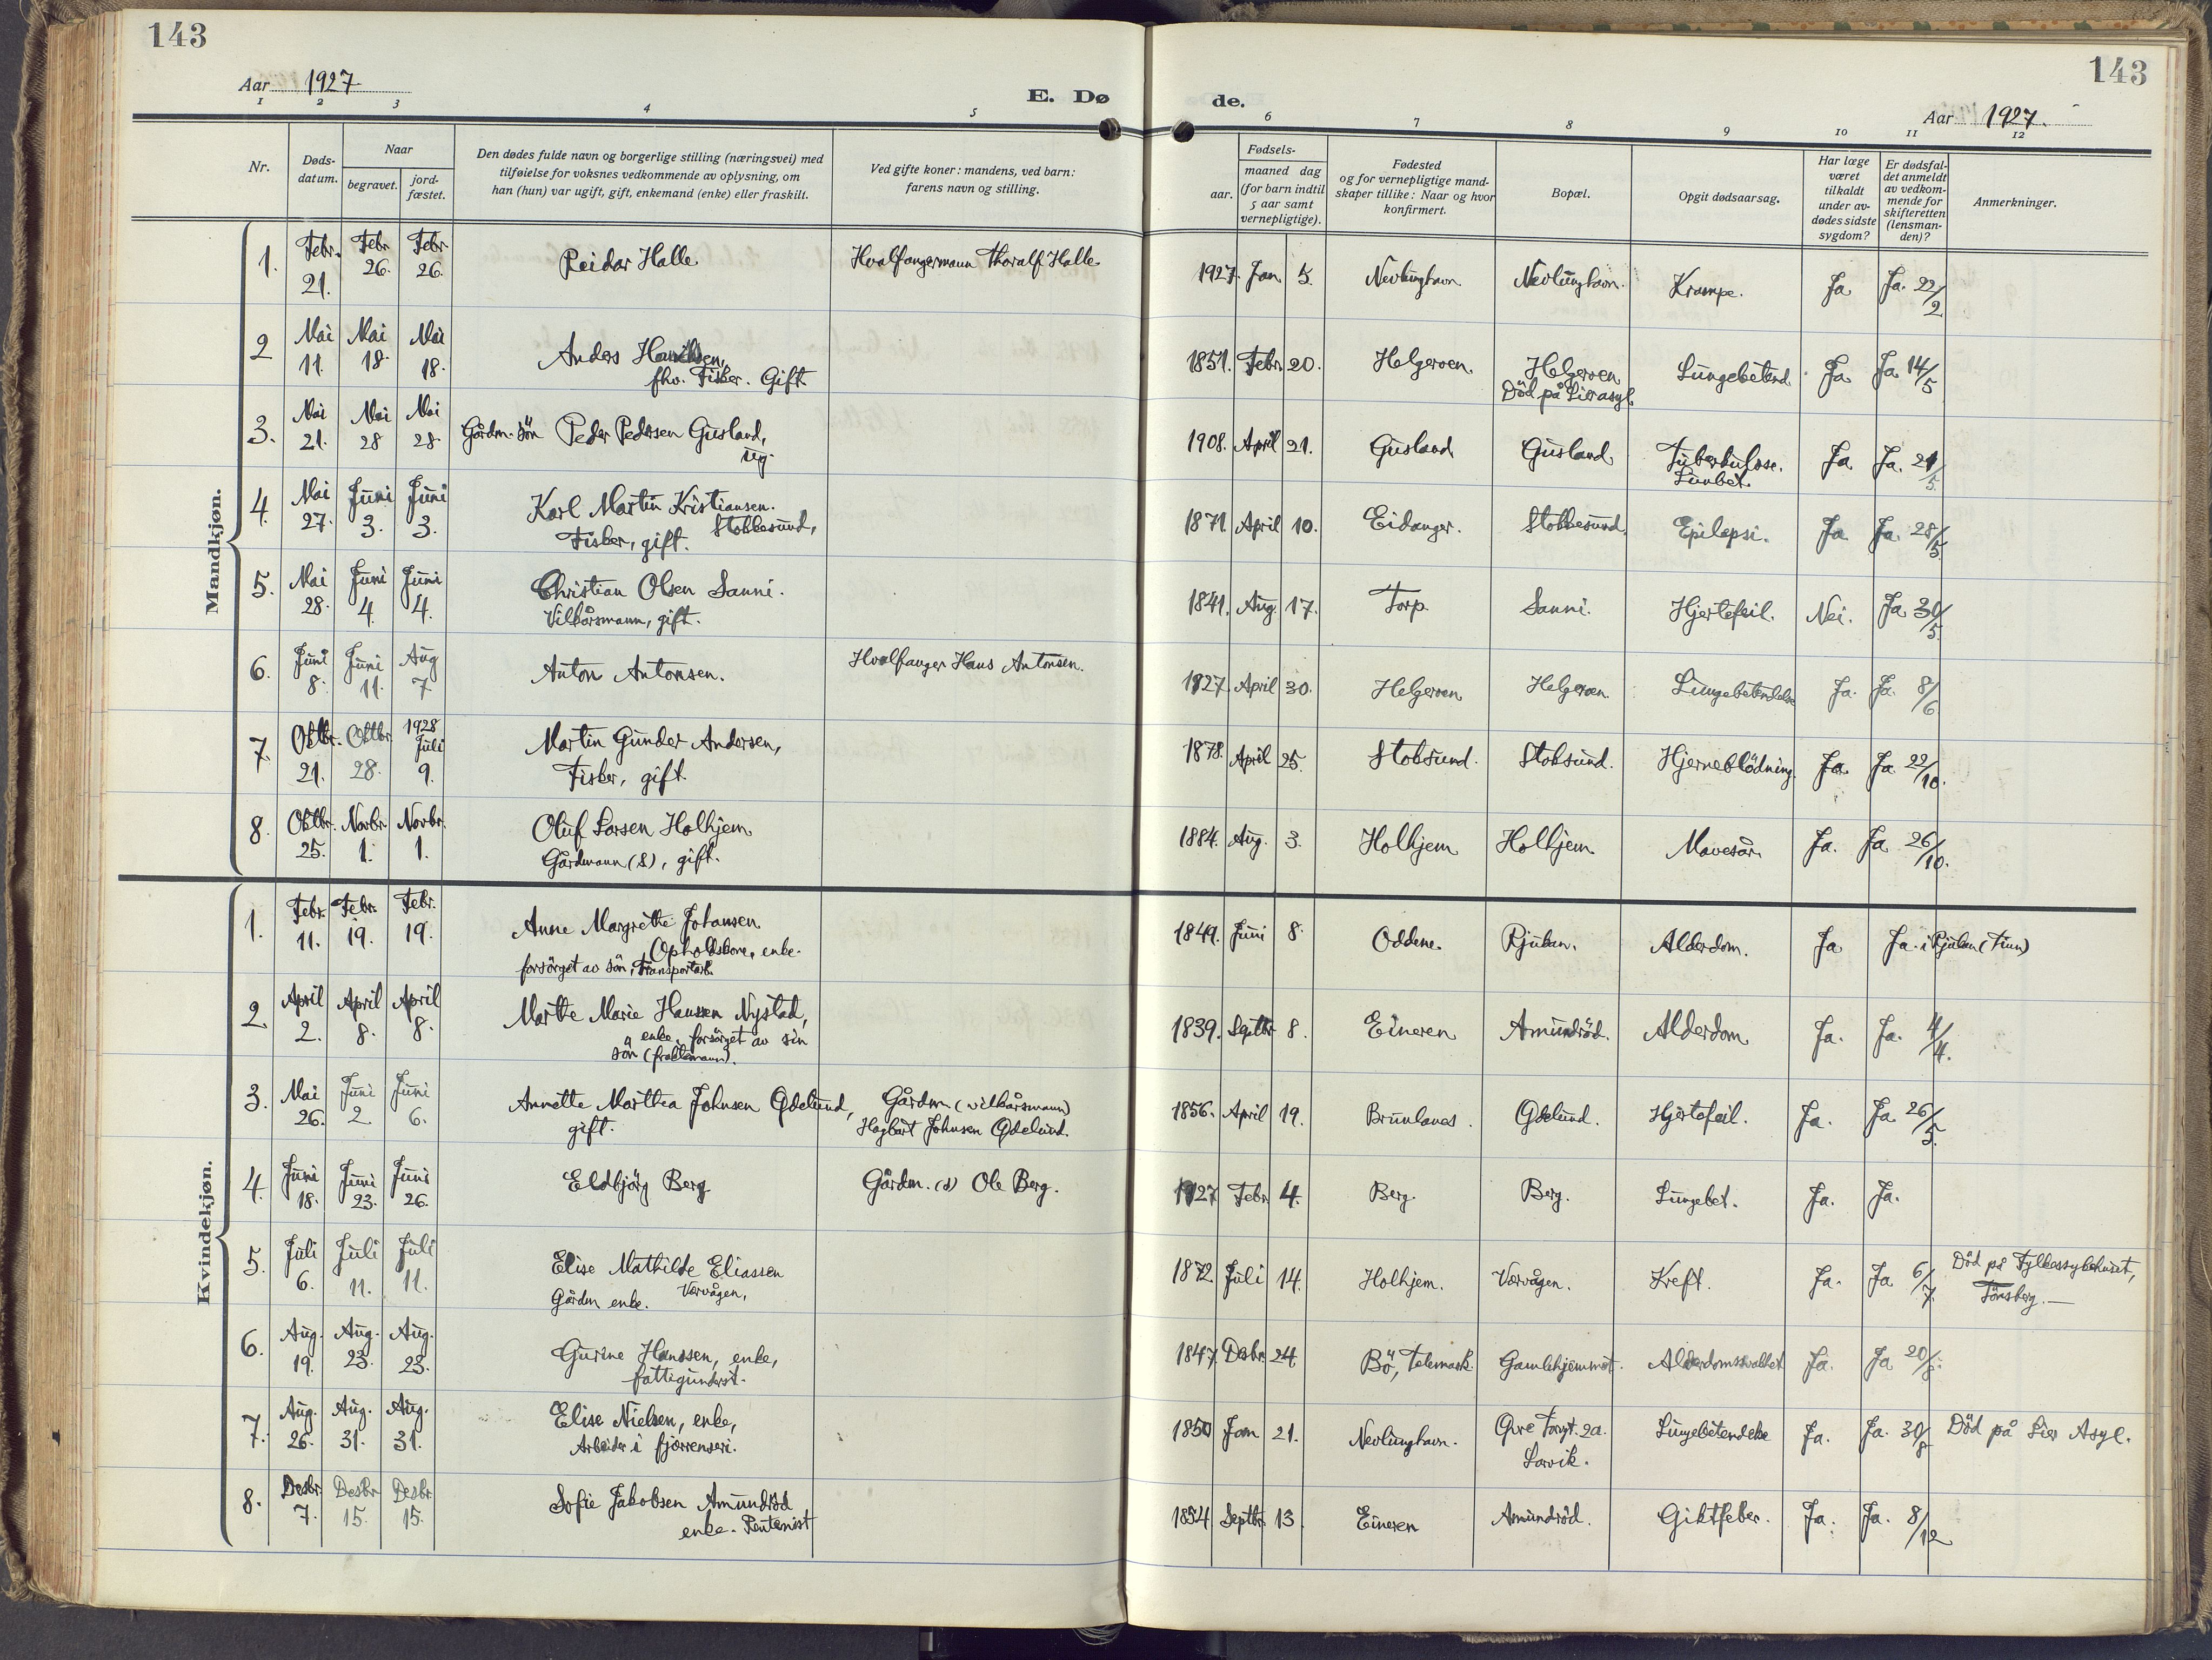 143
143
Aar 1927
E. Dø
de.
Aar 1927.
1 2 3 4 5 6 7 8 9 10 11 12
Nr.
Døds-
datum.
Naar
begravet.
jord-
fæstet.
Den dødes fulde navn og borgerlige stilling (næringsvei) med
tilføielse for voksnes vedkommende av oplysning, om
han (hun) var ugift, gift, enkemand (enke) eller fraskilt.
Ved gifte koner: mandens, ved barn:
farens navn og stilling.
Fødsels-
aar.
maaned dag
(for barn indtil
5 aar samt
vernepligtige).
Fødested
og for vernepligtige mand-
skaper tillike: Naar og hvor
konfirmert.
Bopæl.
Opgit dødsaarsag.
Har læge
været
tilkaldt
under av-
dødes sidste
sygdom?
Er dødsfal-
det anmeldt
av vedkom-
mende for
skifteretten
(lensman-
den)?
Anmerkninger.
Mandkjøn.
1. Febr. 21. Febr. 26. Febr. 26. Reidar Halle Hvalfangermann Thoralf Halle. 1927. Jan. 5. Nevlunghavn. Nevlunghavn. Krampe. Ja Ja. 22/2
2 Mai 11. Mai 18. Mai 18. Anders Hansen,
fhv. Fisker. Gift. 1851. Febr. 20. Helgeroen. Helgeroen
Död på Lier asyl. Lungebetend. Ja Ja 14/5
3. Mai 21. Mai 28 Mai 28. Gårdm. sön Peder Pedersen Gusland,
ug. 1908. April 21. Gusland Gusland Tuberkulose.
Lunbet. Ja Ja. 21/5
4. Mai 27. Juni 3. Juni 3. Karl Martin Kristiansen.
Stokkesund,
Fisker, gift. 1871. April 10. Eidanger. Stokkesund. Epilepsi. Ja Ja. 28/5
5. Mai 28. Juni 4. Juni 4. Christian Olsen Sanni.
Vilkårsmann, gift. 1841. Aug. 17. Torp. Sanni. Hjertefeil. Nei. Ja 30/5
6. Juni 8. Juni 11. Aug 7 Anton Antonsen. Hvalfanger Hans Antonsen. 1927. April 30. Helgeroen Helgeroen. Lungebetendelse Ja. Ja. 8/6
7. Oktbr. 21. Oktbr. 28. 1928 Juli 9. Martin Gunder Andersen,
Fisker, gift. 1878. April 25. Stoksund. Stoksund. Hjerneblödning Ja. Ja 22/10.
8. Oktbr. 25. Novbr. 1. Novbr. 1. Oluf Larsen Holhjem.
Gårdmann (S), gift. 1884. Aug. 3. Holhjem Holhjem. Mavesår. Ja. Ja 26/10.
Kvindekjøn.
1. Febr. 11. Febr. 19. Febr. 19. Anne Margrethe Johansen.
Opholdskone, enke.
forsörget av sön, Transportarb. 1849. Juni 8. Oddene. Rjukan. Alderdom. Ja Ja. i Rjukan (Tinn)
2. April 2. April 8. April 8. Marthe Marie Hansen Nystad,
enke, forsörget av sin
sön (fraktemann). 1839. Septbr 8. Eineren Amundröd. Alderdom. Ja. Ja. 4/4.
3. Mai 26. Juni 2. Juni 6. Annette Marthea Johnsen Ødelund,
gift. Gårdm. (vilkårsmann)
Hagbart Johnsen Ødelund. 1856. April 19. Brunlanes. Ødelund. Hjertefeil. Ja. Ja 26/5.
4. Juni 18. Juni 23. Juni 26. Eldbjörg Berg Gårdm. (s) Ole Berg. 1927 Febr 4. Berg. Berg. Lungebet. Ja. Ja.
5. Juli 6. Juli 11. Juli 11. Elise Mathilde Eliassen
Vervågen,
Gårdm. enke. 1872. Juli 14. Holhjem. Vervågen. Kreft. Ja. Ja 6/7. Död på Fylkessykehuset,
Tönsberg. —
6. Aug. 19. Aug. 23. Aug. 23. Gurine Hanssen, enke,
fattigunderst. 1847. Desbr. 24. Bö, Telemark. Gamlehjemmet. Alderdomssvakhet Ja. Ja 20/8.
7. Aug. 26. Aug. 31. Aug. 31. Elise Nielsen, enke,
Arbeider i fjørrenseri. 1850 Jan 21. Nevlunghavn. Øvre Torvgt. 2a.
Larvik. Lungebetendelse Ja. Ja. 30/8 Död på Lier Asyl.
8. Desbr 7. Desbr 15. Desbr 15. Sofie Jakobsen Amundröd
enke. Rentenist 1854 Septbr. 13. Eineren Amundröd. Giktfeber. Ja. Ja. 8/12